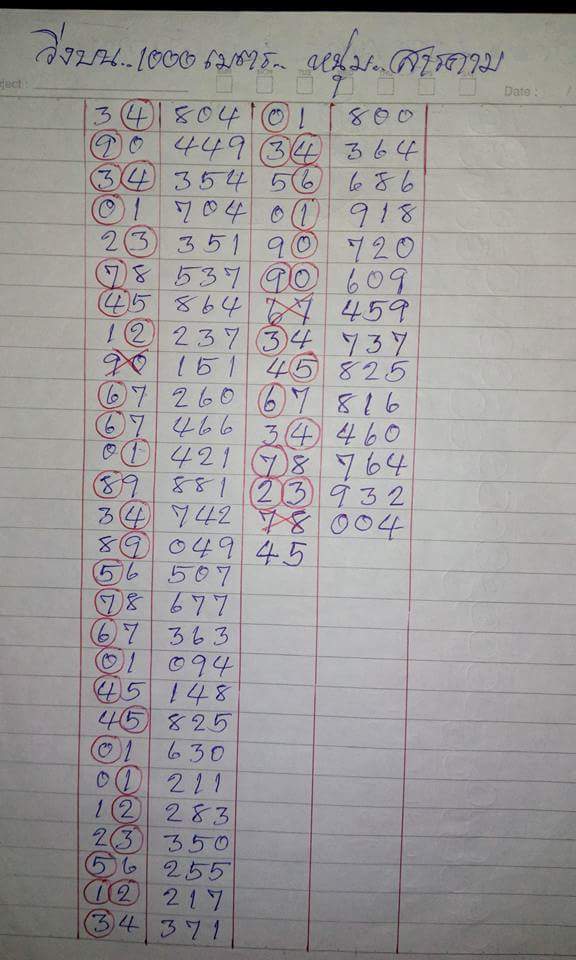 วิ่งบน..1000 เมตร.. หนุ่ม..สารคาม
ject : Date : /
34 804 01 800
90 449 34 364
34 354 56 686
01 704 01 918
23 351 90 720
78 537 90 609
45 864 67 459
12 237 34 737
90 151 45 825
67 260 67 816
67 466 34 460
01 421 78 764
89 881 23 932
34 742 78 004
89 049 45
56 507
78 677
67 363
01 094
45 148
45 825
01 630
01 211
12 283
23 350
56 255
12 217
34 371